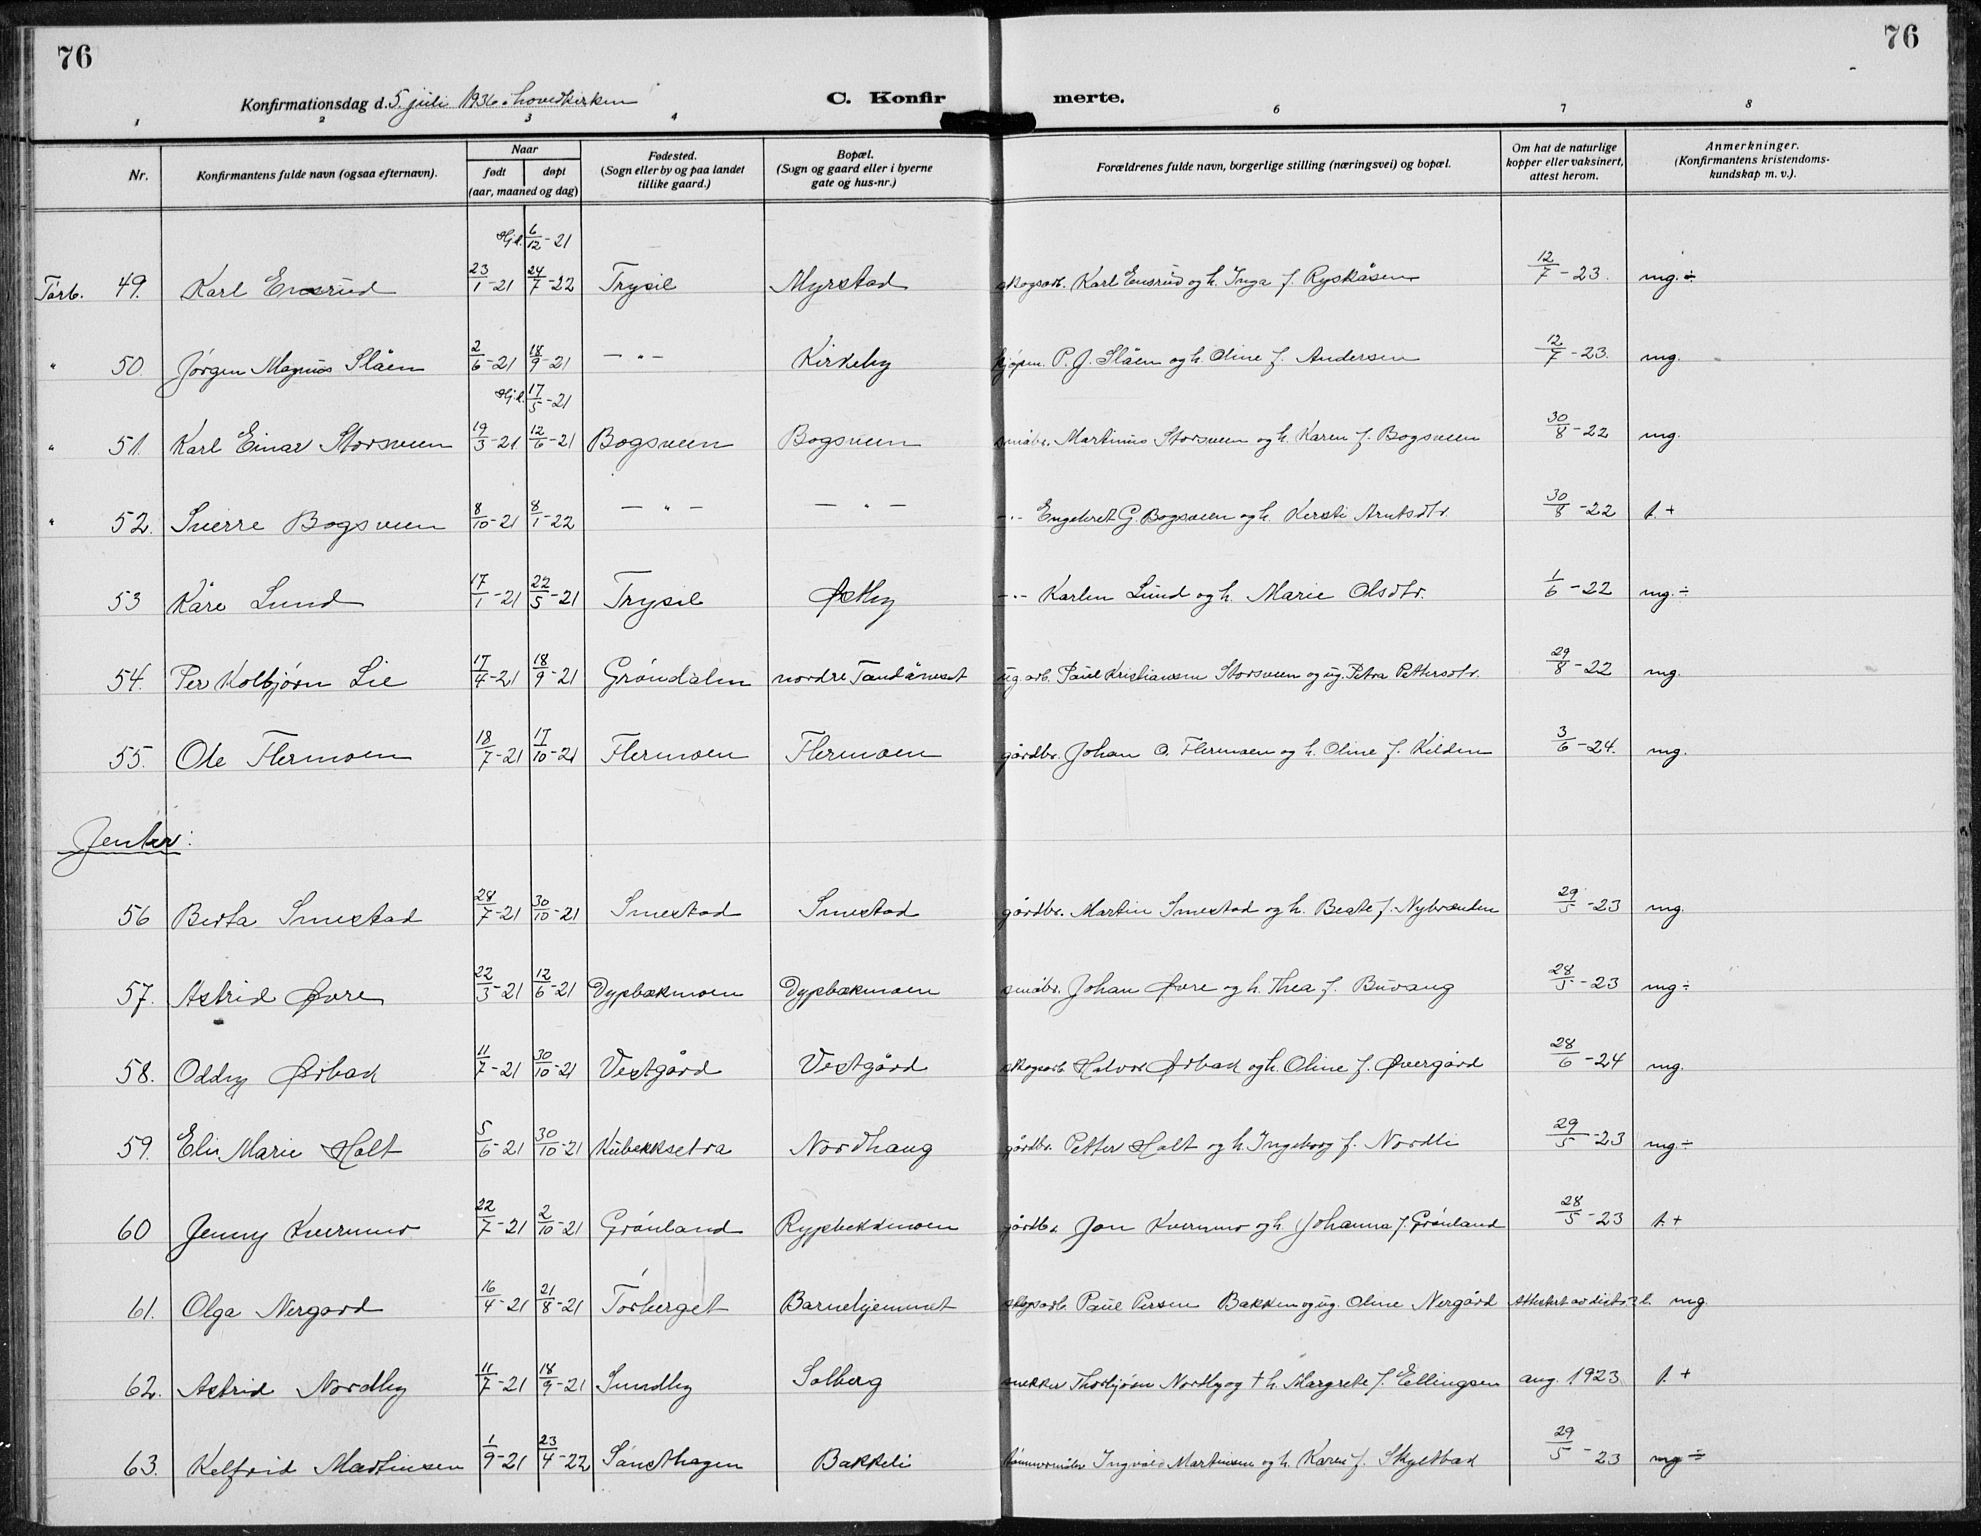 76
76
Konfirmationsdag d. 5. juli 1936 i hovedkirken
C. Konfir
merte.
1 2 3 4 6 7 8
Nr.
Konfirmantens fulde navn (ogsaa efternavn).
Naar
født døpt
(aar, maaned og dag)
Fødested.
(Sogn eller by og paa landet
tillike gaard.)
Bopæl.
(Sogn og gaard eller i byerne
gate og hus-nr.)
Forældrenes fulde navn, borgerlige stilling (næringsvei) og bopæl.
Om hat de naturlige
kopper eller vaksinert,
attest herom.
Anmerkninger.
(Konfirmantens kristendoms-
kundskap m. v.).
Hjd. 6/12-21
Tørb. 49. Karl Ensrud 23/1-21 24/7-22 Trysil Myrstad skogsarb. Karl Ensrud og h. Inga f. Ryskåsen 12/7-23. mg. ÷
" 50. Jørgen Magnus Slåen 2/6-21 18/9-21 — " — Kirkeby kjøpm. P. J. Slåen og h. Oline f. Andersen 12/7-23. mg.
Hjd. 17/5-21
" 51. Karl Einar Storsveen 19/3-21 12/6-21 Bogsveen Bogsveen småbr. Martinus Storsveen og h. Karen f. Bogsveen 30/8-22 mg.
" 52. Sverre Bogsveen 8/10-21 8/1-22 — " — — " — -"- Engebret G. Bogsveen og h. Kersti Arntsdtr. 30/8-22 t. +
53 Kåre Lund 17/1-21 22/5-21 Trysil Østby -"- Karlen Lund og h. Marie Olsdtr. 1/6-22 mg. ÷
54. Per Kolbjørn Lie 17/4-21 18/9-21 Grøndalen nordre Tandåneset ug. arb. Paul Kristiansen Storsveen og ug. Petra Pettersdtr. 29/8-22 mg.
55. Ole Flermoen 18/7-21 17/10-21 Flermoen Flermoen gårdbr. Johan O. Flermoen og h. Oline f. Kilden 3/6-24. mg.
Jenter:
56 Berta Smestad 28/7-21 30/10-21 Smestad Smestad gårdbr. Martin Smestad og h. Beate f. Nybrænden 29/5-23 mg.
57. Astrid Øvre 22/3-21 12/6-21 Dypbækmoen Dypbækmoen småbr. Johan Øvre og h. Thea f. Buvang 28/5-23 mg ÷
58. Oddny Ørbak 11/7-21 30/10-21 Vestgård Vestgård skogsarb. Halvor Ørbak og h. Oline f. Øvergård 28/6-24 mg.
59. Eli Marie Holt 5/6-21 30/10-21 Kubekksetra Nordhaug gårdbr. Petter Holt og h. Ingeborg f. Nordli 29/5-23 mg ÷
60 Jenny Kvernmo 22/7-21 2/10-21 Grønland Rypbekkmoen gårdbr. Jon Kvernmo og h. Johanna f. Grønland 28/5-23 t. +
61. Olga Nergård 16/4-21 21/8-21 Tørberget Barnehjemmet skogsarb. Paul Persen Bakken og ug. Oline Nergård Attestert av distr. l. mg
62. Astrid Nordby 11/7-21 18/9-21 Sundby Solberg snekker Thorbjørn Nordby og † h. Margrete f. Ellingsen aug. 1923 t. +
63. Kelfrid Martinsen 1/9-21 23/4-22 Sanethagen Bakkeli tømmermåler Ingvald Martinsen og h. Karen f. Skyltbak 29/5-23 mg ÷